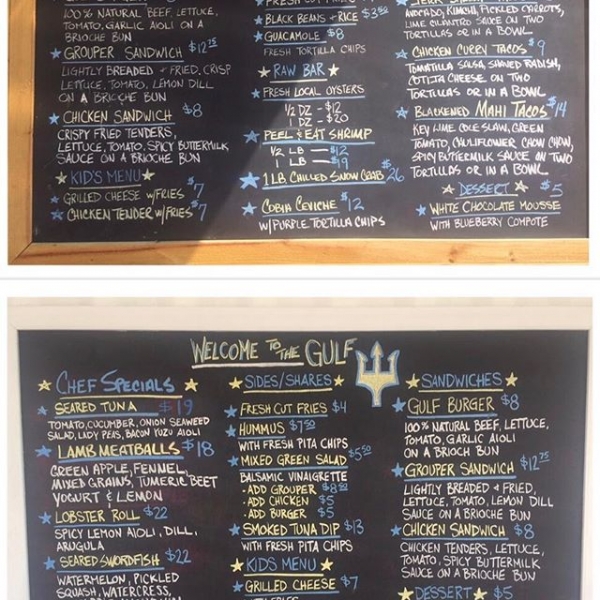 100% NATURAL BEEF, LETTUCE,
TOMATO, GARLIC AIOLI ON A
BRIOCHE BUN
GROUPER SANDWICH $12.75
LIGHTLY BREADED + FRIED, CRISP
LETTUCE, TOMATO, LEMON DILL
ON A BRIOCHE BUN
CHICKEN SANDWICH $8
CRISPY FRIED TENDERS,
LETTUCE, TOMATO, SPICY BUTTERMILK
SAUCE ON A BRIOCHE BUN
KID'S MENU
GRILLED CHEESE W/FRIES $7
CHICKEN TENDER W/FRIES $7
BLACK BEANS + RICE $3.50
GUACAMOLE $8
FRESH TORTILLA CHIPS
RAW BAR
FRESH LOCAL OYSTERS
1/2 DZ - $12
1 DZ - $20
PEEL & EAT SHRIMP
1/2 LB - $12
1 LB - $19
1 LB CHILLED SNOW CRAB $26
COBIA CEVICHE $12
W/PURPLE TORTILLA CHIPS
AVOCADO, KIMCHI, PICKLED CARROTS,
LIME CILANTRO SAUCE ON TWO
TORTILLAS OR IN A BOWL
CHICKEN CURRY TACOS $9
TOMATILLA SALSA, SHAVED RADISH,
COTITA CHEESE ON TWO
TORTILLAS OR IN A BOWL
BLACKENED MAHI TACOS $14
KEY LIME COLE SLAW, GREEN
TOMATO, CAULIFLOWER CHOW CHOW,
SPICY BUTTERMILK SAUCE ON TWO
TORTILLAS OR IN A BOWL
DESSERT $5
WHITE CHOCOLATE MOUSSE
WITH BLUEBERRY COMPOTE
WELCOME TO THE GULF
CHEF SPECIALS
SEARED TUNA $19
TOMATO, CUCUMBER, ONION SEAWEED
SALAD, LADY PEAS, BACON YUZU AIOLI
LAMB MEATBALLS $18
GREEN APPLE, FENNEL,
MIXED GRAINS, TUMERIC BEET
YOGURT & LEMON
LOBSTER ROLL $22
SPICY LEMON AIOLI, DILL,
ARUGULA
SEARED SWORDFISH $22
WATERMELON, PICKLED
SQUASH, WATERCRESS,
SIDES/SHARES
FRESH CUT FRIES $4
HUMMUS $7.50
WITH FRESH PITA CHIPS
MIXED GREEN SALAD $5.50
BALSAMIC VINAIGRETTE
- ADD GROUPER $8.50
- ADD CHICKEN $5
- ADD BURGER $5
SMOKED TUNA DIP $13
WITH FRESH PITA CHIPS
KIDS MENU
GRILLED CHEESE $7
SANDWICHES
GULF BURGER $8
100% NATURAL BEEF, LETTUCE,
TOMATO, GARLIC AIOLI
ON A BRIOCHE BUN
GROUPER SANDWICH $12.75
LIGHTLY BREADED + FRIED,
LETTUCE, TOMATO, LEMON DILL
SAUCE ON A BRIOCHE BUN
CHICKEN SANDWICH $8
CHICKEN TENDERS, LETTUCE,
TOMATO, SPICY BUTTERMILK
SAUCE ON A BRIOCHE BUN
DESSERT $5